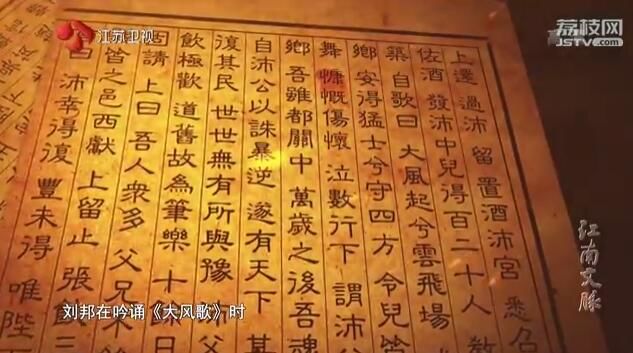 江苏卫视
荔枝网
JSTV.com
上還 過沛 留 置酒沛宮 悉召
佐酒 發沛中兒得百二十人 教
築 自歌曰 大風起兮雲飛場
鄉 安得猛士兮守四方 令兒皆
舞 慷慨傷懷 泣數行下 謂沛
鄉 吾雖都關中 萬歲之後吾魂
自沛公以誅暴逆 遂有天下 其
復其民 世世無有所與豫 父
飲極歡 道舊故為筆樂 十 日
固請 上曰 吾人衆多 父兄不
笛之邑西獻 上留止 張飲三
曰 沛幸得復 豐未得 唯陛
江南文脉
刘邦在吟诵《大风歌》时